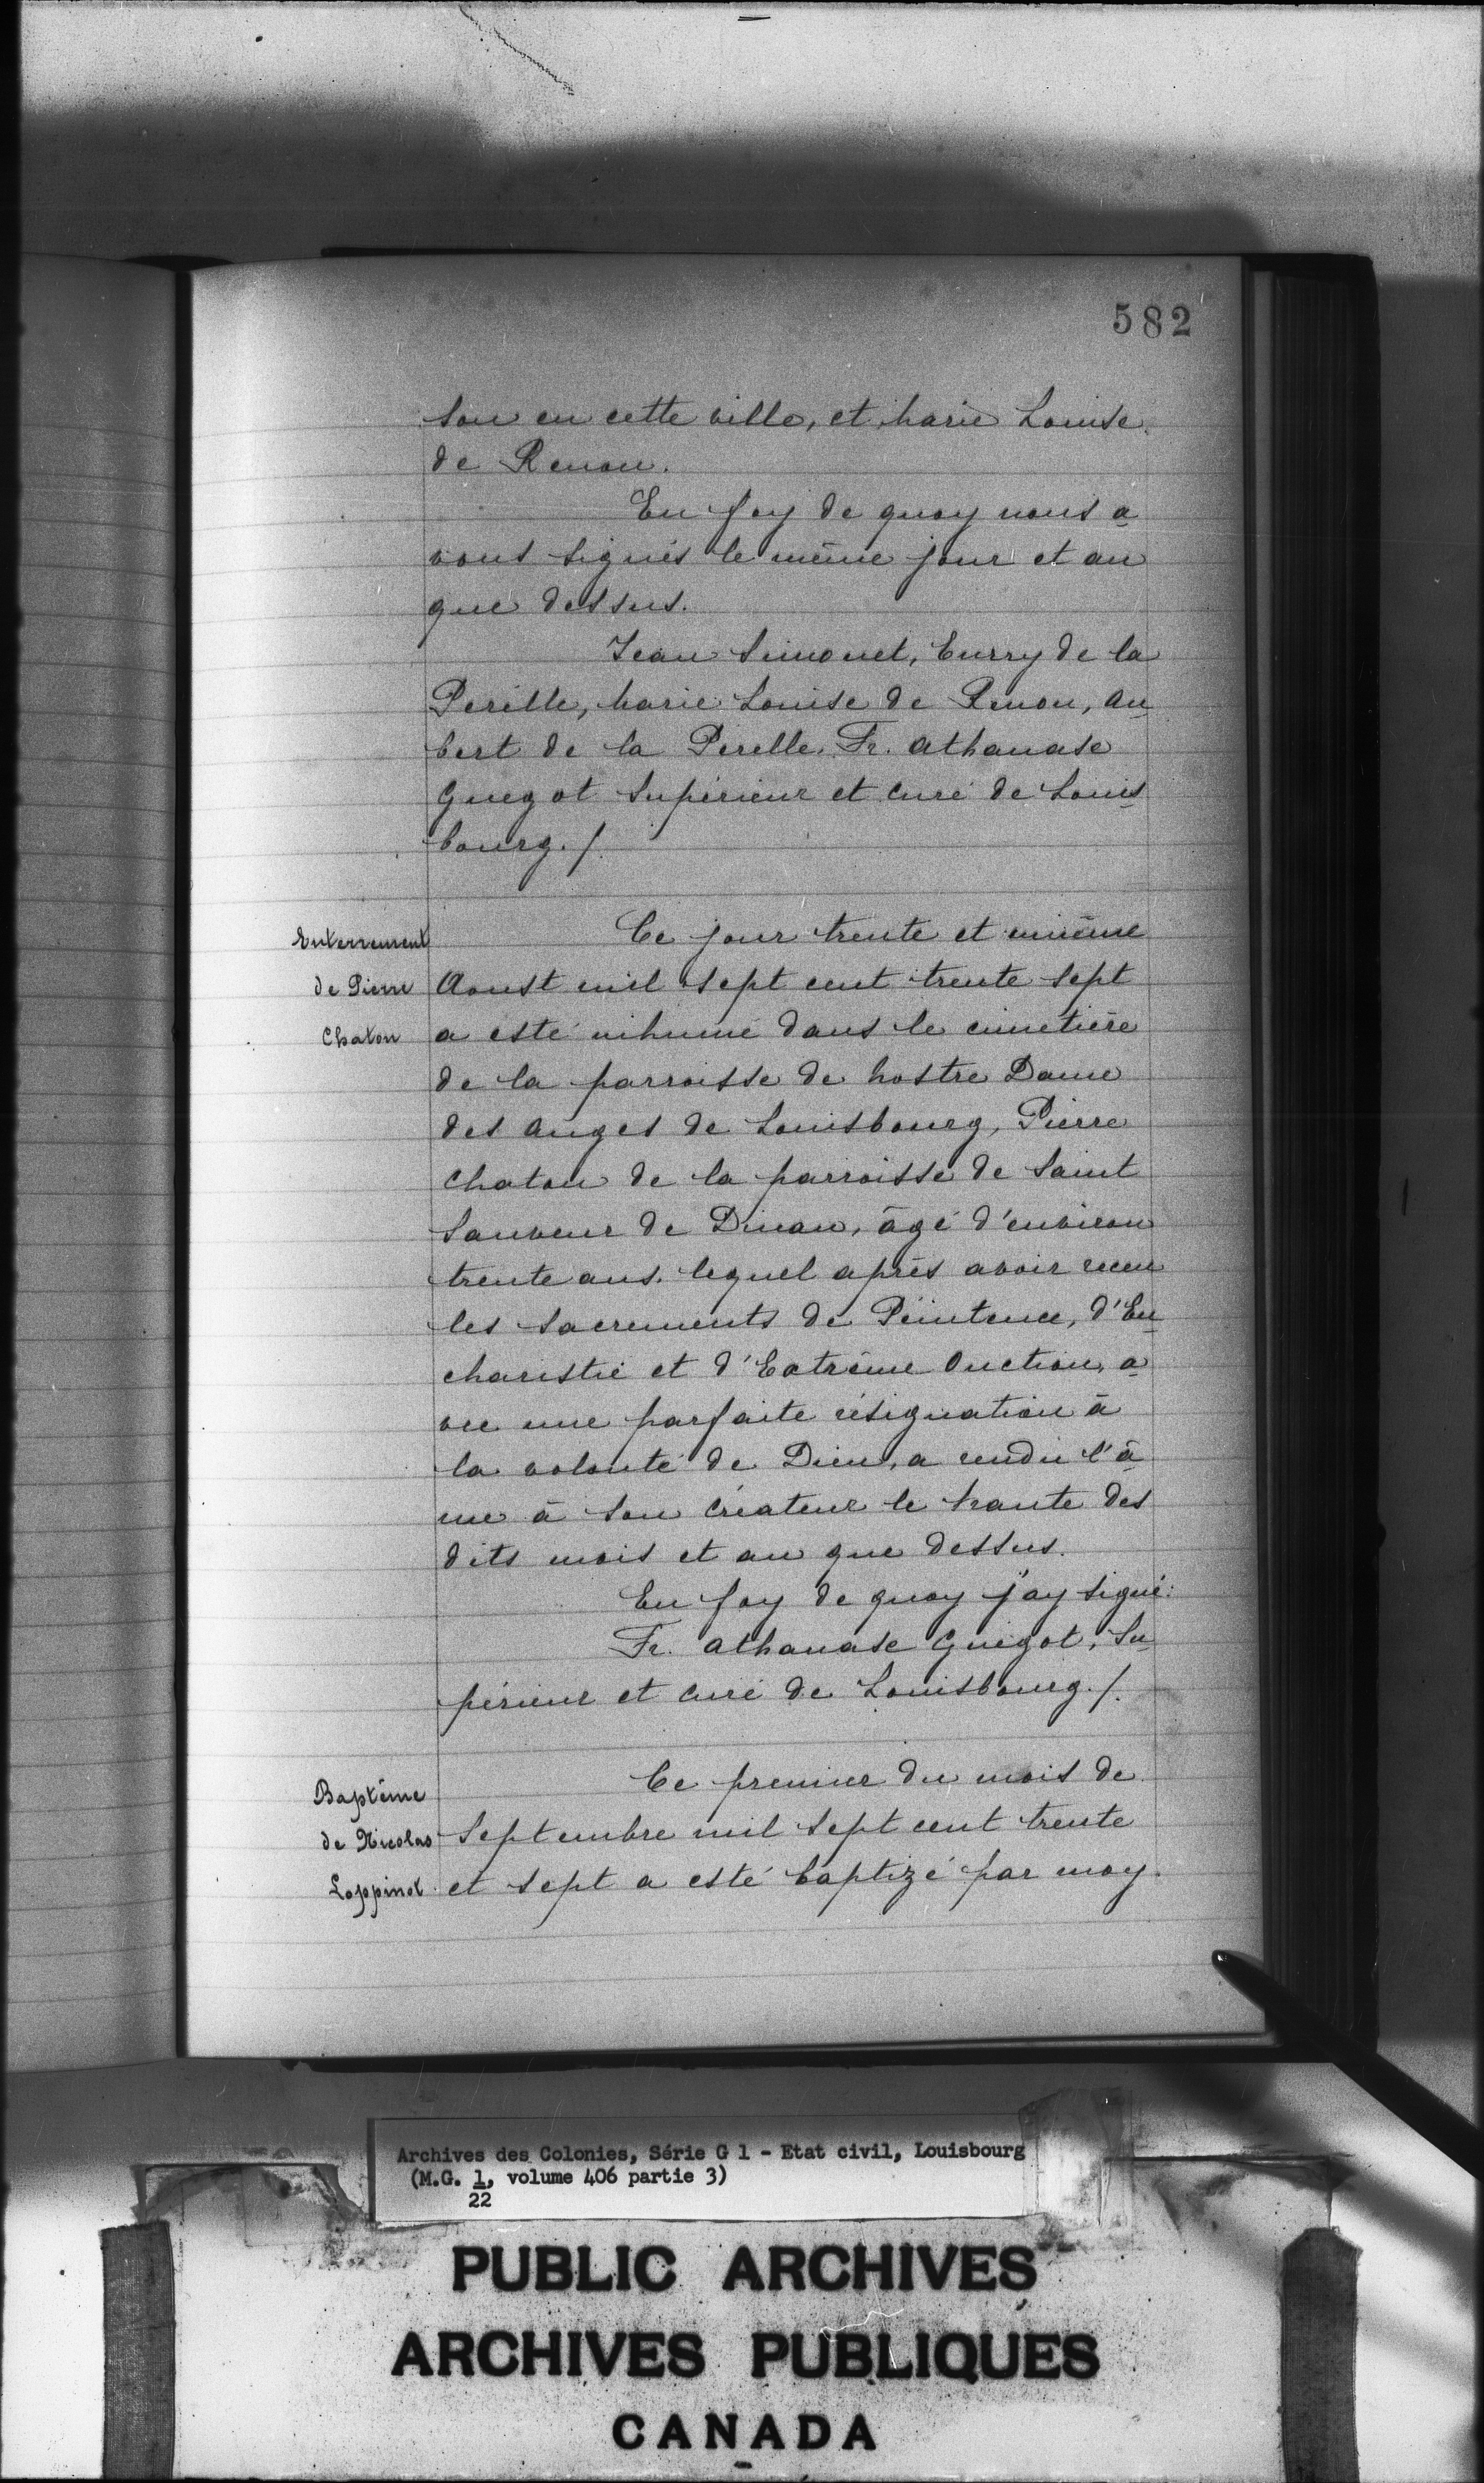 582
son en cette ville, et Marie Louise
de Renou.
En foy de quoy nous a
vons signés le même jour et an
que dessus.
Jean Simonet, Curry de la
Perille, Marie Louise de Renou, Au
bert de la Perelle, Fr. Athanase
Guegot Supérieur et Curé de Louis
bourg./.
Enterrement
de Pierre
Chaton
Ce jour trente et unième
Aoust mil sept cent trente sept
a esté inhumé dans le cimetière
de la parroisse de Nostre Dame
des Anges de Louisbourg, Pierre
Chaton de la parroisse de Saint
Sauveur de Dinan, âgé d'environ
trente ans. lequel après avoir receu
les Sacrements de Pénitence, d'Eu
charistie et d'Extrême Onction, a
vec une parfaite résignation à
la volonté de Dieu, a rendu l'â
me à son Créateur le trante des
dits mois et an que dessus.
En foy de quoy j'ay signé:
Fr. Athanase Guégot, Su
périeur et Curé de Louisbourg./.
Baptême
de Nicolas
Loppinot
Ce premier du mois de
Septembre mil sept cent trente
et sept a esté baptizé par moy
Archives des Colonies, Série G 1 - Etat civil, Louisbourg
(M.G. 1, volume 406 partie 3)
22
PUBLIC ARCHIVES
ARCHIVES PUBLIQUES
CANADA